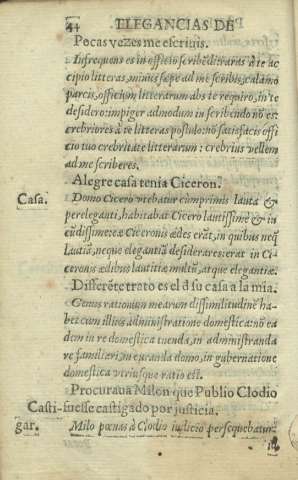 44 ELEGANCIAS DE
Pocas vezes me escriuis.
Infrequens es in officio scribẽdi: raras à te ac
cipio litteras, minùs sæpe ad me scribis, calamo
parcis, officium litterarum abs te requiro, in te
desidero: impiger admodum in scribendo nõ es:
crebriores à te litteras postulo: nõ satisfacis offi
cio tuo crebritate litterarum: crebriùs vellem
ad me scriberes.
Alegre casa tenia Ciceron.
Casa.
Domo Cicero vtebatur cumprimis lauta &
pereleganti, habitabat Cicero lautissimè & in
eædes erãt, in quibus neq;
Lautiã, neque elegantiã desiderares: erat in Ci-
ceronis ædibus lautitiæ multũ, atque elegantiæ.
Differẽte trato es el d̃ su casa a la mia.
Genus rationum mearum dissimilitudinẽ ha-
bet cum illius administratione domestica: nõ ea
dem in re domestica tuenda, in administranda
re familiari, in curanda domo, in gubernatione
domestica vtriusque ratio est.
Procuraua Milon que Publio Clodio
Casti- fuesse castigado por justicia.
gar. Milo pœnas à Clodio iudicio persequebatur: